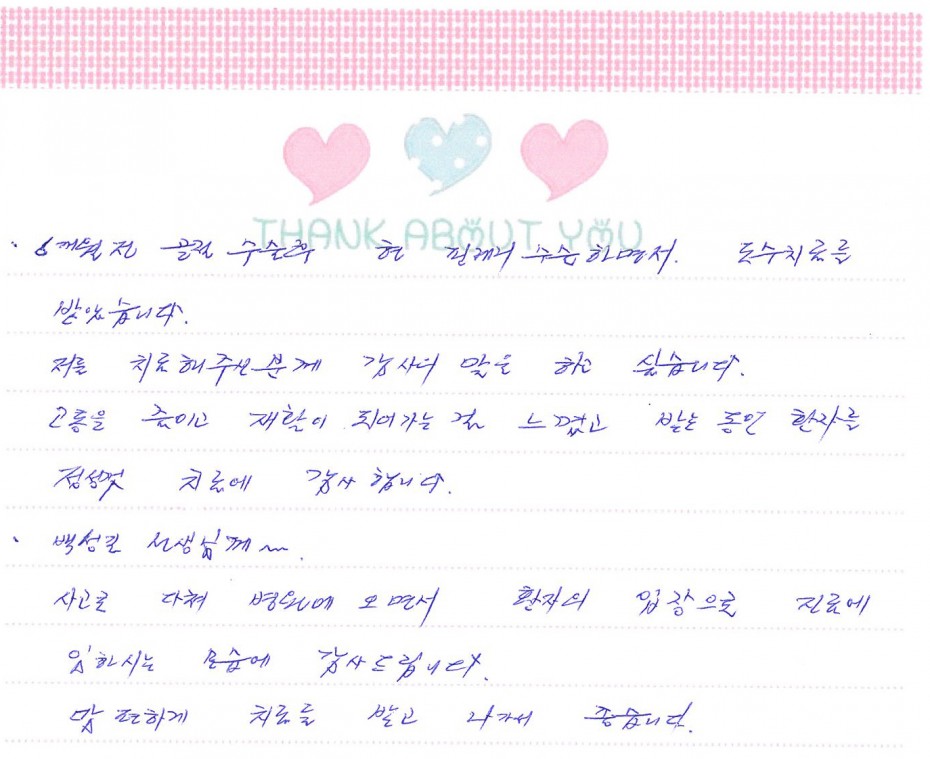 THANK ABOUT YOU
· 6개월 전 골절 수술후 현 수술하면서. 도수치료를
받았습니다.
저를 치료해주신분께 감사의 말을 하고 싶습니다.
고통을 줄이고 재활이 되어가는 걸 느꼈고 받는 동안 환자를
정성껏 치료에 감사합니다.
· 백성길 선생님께~.
사고로 다쳐 병원에 오면서 환자의 입장으로 진료에
임하시는 모습에 감사드립니다.
맘 편하게 치료를 받고 나가서 좋습니다.